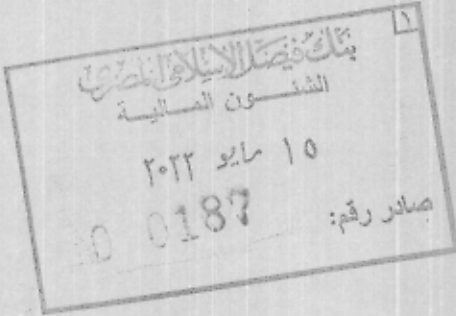 ١
بنك فيصل الإسلامي المصري
الشئون المالية
١٥ مايو ٢٠٢٢
صادر رقم: 0187